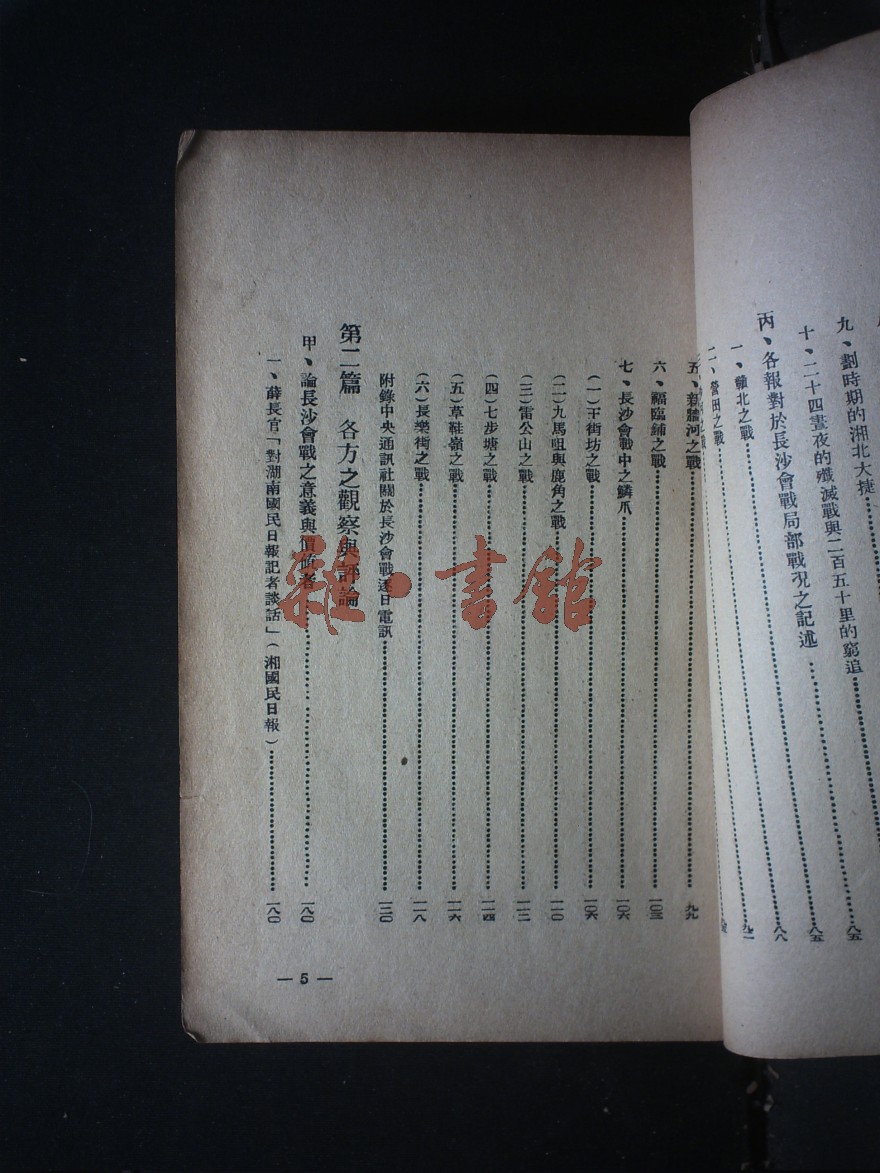 九、劃時期的湘北大捷……八五
十、二十四晝夜的殲滅戰與二百五十里的窮追……八五
丙、各報對於長沙會戰局部戰況之記述……八八
一、贛北之戰……九一
二、營田之戰
五、新牆河之戰……九九
六、福臨鋪之戰……一〇三
七、長沙會戰中之鱗爪……一〇六
(一)王街坊之戰……一〇六
(二)九馬咀與鹿角之戰……一一〇
(三)雷公山之戰……一一二
(四)七步塘之戰……一一四
(五)草鞋嶺之戰……一一六
(六)長樂街之戰……一一八
附錄中央通訊社關於長沙會戰逐日電訊……一二〇
第二篇 各方之觀察與評論
甲、論長沙會戰之意義與價值者……一八〇
一、薛長官「對湖南國民日報記者談話」(湘國民日報)……一八〇
— 5 —
雜·書館